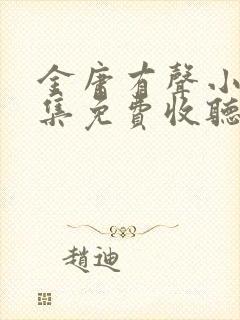 金庸有聲小
集免費收聽
趙迪